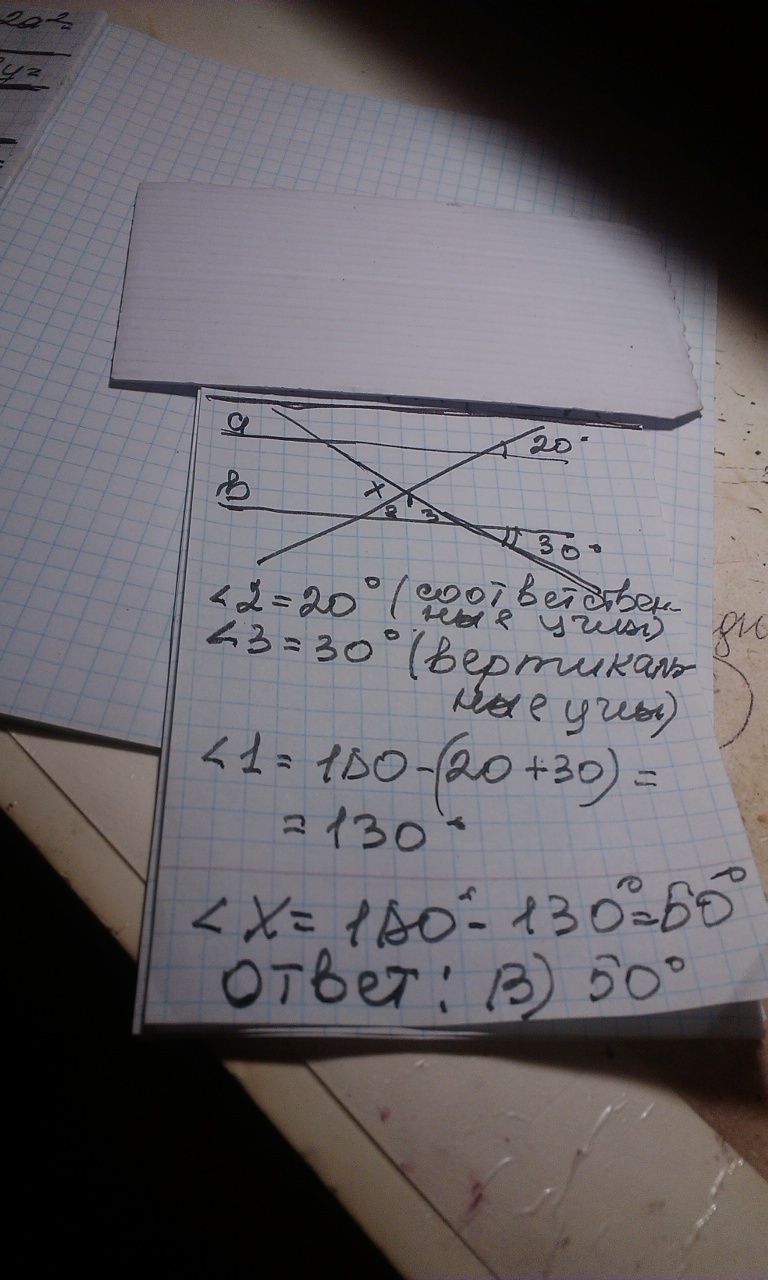 2a²=
y=
a
20°
x
в
2 1 3
30°
<2=20° (соответствен-
ные углы)
<3=30° (вертикаль-
ные углы)
<1= 180-(20+30)=
=130°
<X= 180°- 130°=50°
Ответ: В) 50°